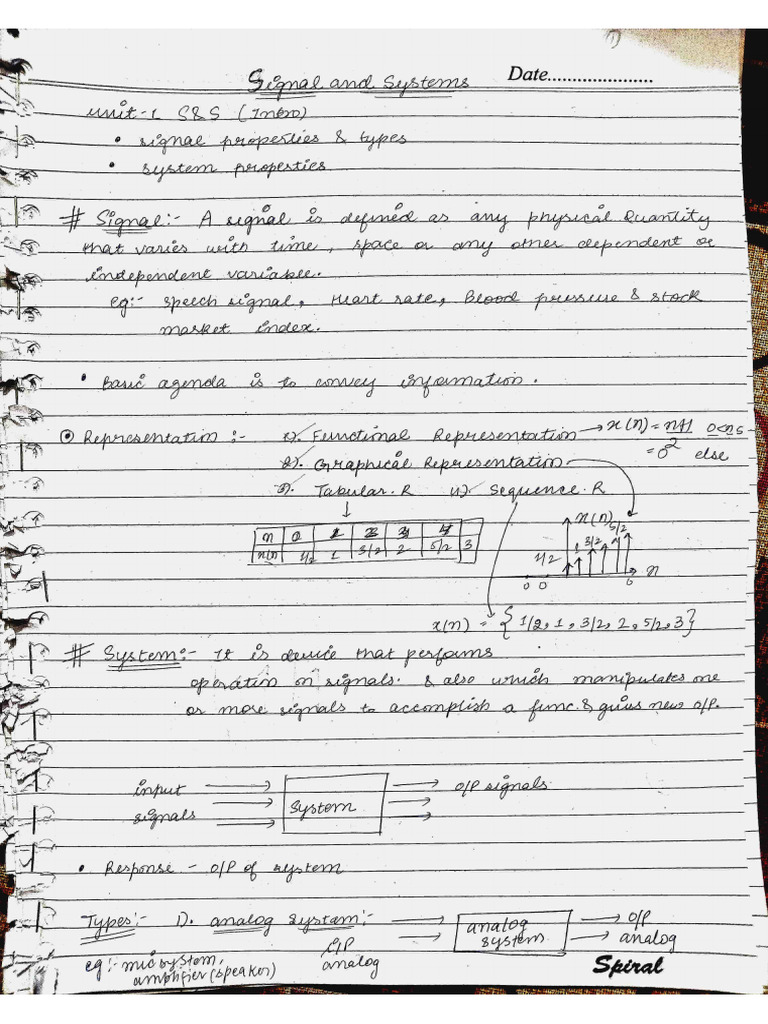 1)
Signal and Systems Date.....................
Unit-1 S&S (Intro)
• signal properties & types
• system properties
# Signal:- A signal is defined as any physical Quantity
that varies with time, space or any other dependent or
independent variable.
eg:- speech signal, Heart rate, Blood pressure & stock
market index.
• Basic agenda is to convey information.
⊙ Representation:- 1). Functional Representation → x(n) = n+1 0<n≤
2 = 0 else
2). Graphical Representation
3). Tabular.R 4). Sequence.R
n 0 1 2 3 4
x(n) 1/2 1 3/2 2 5/2 3
x(n)
1/2 1 3/2 2 5/2
n
0 0 0
x(n) = {1/2, 1, 3/2, 2, 5/2, 3}
# System:- It is device that performs
operation on signals. & also which manipulates one
or more signals to accomplish a func. & gives new O/P.
input → → O/P signals
signals → system →
• Response - O/P of system
Types:- 1). analog system:- → analog system → O/P
i/P analog → analog
eg:- mic system,
amplifier (speaker)
Spiral